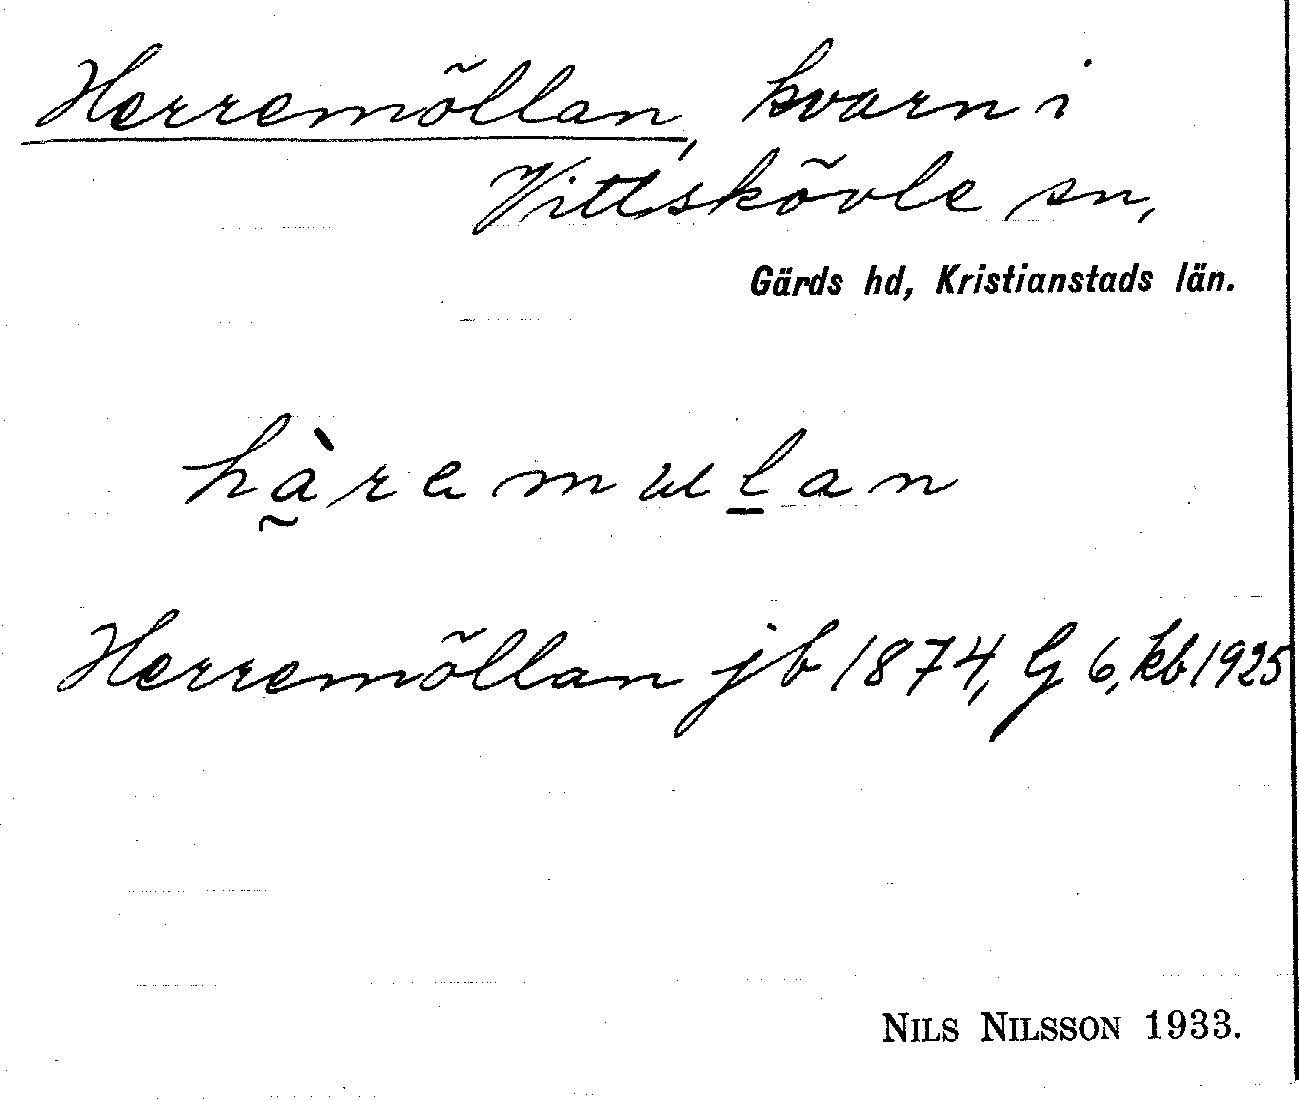 Herremöllan, kvarn i
Vittskövle sn,
Gärds hd, Kristianstads län.
hàremulan
Herremöllan jb 1874, G 6, kb 1925
NILS NILSSON 1933.